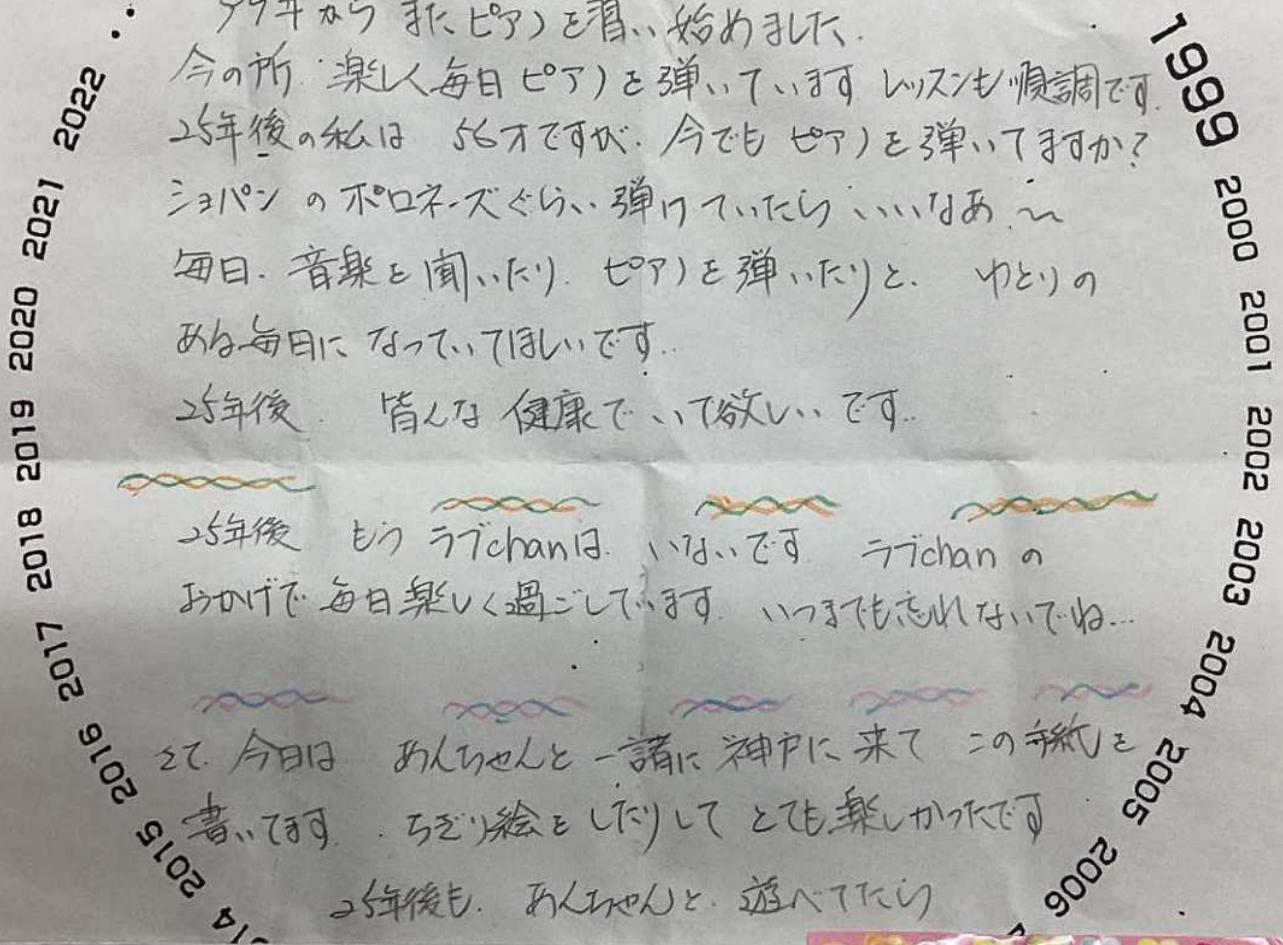 からまたピアノを習い始めました.
今の所 楽しく毎日ピアノを弾いています レッスンも順調です.
25年後の私は 56才ですが. 今でも ピアノを弾いてますか?
ショパン の ポロネーズぐらい 弾けていたら いいなあ 〜
毎日. 音楽を聞いたり. ピアノを弾いたりと. ゆとりの
ある毎日に なっていてほしいです..
25年後. 皆んな 健康でいて欲しいです..
25年後 もう ラブchanは. いないです ラブchan の
おかげで 毎日楽しく過ごしています. いつまでも忘れないでね...
さて. 今日は あんちゃんと一諸に 神戸に 来て この手紙を
書いてます. ちぎり絵をしたりして とても楽しかったです
25年後も. あんちゃんと. 遊べてたら
1999 2000 2001 2002 2003 2004 2005 2006
2015 2016 2017 2018 2019 2020 2021 2022